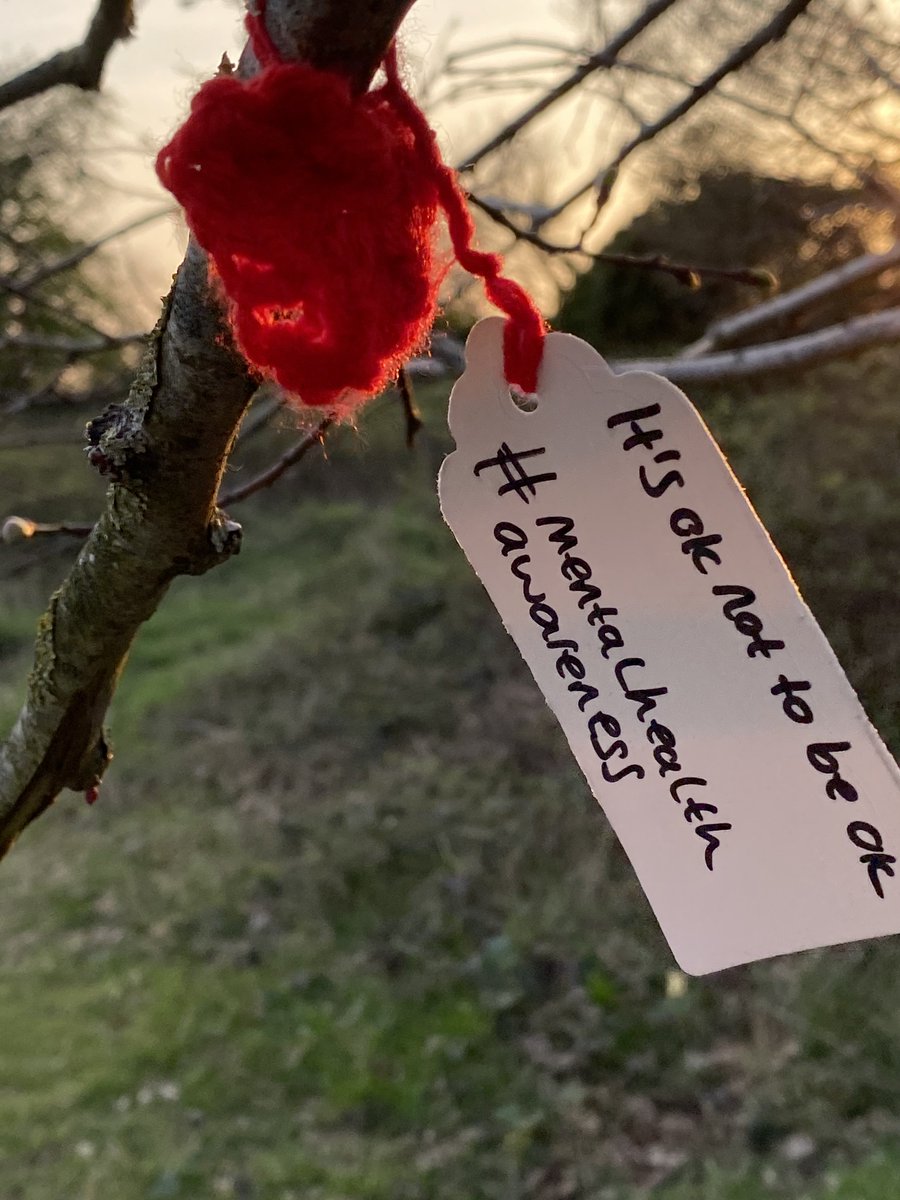 It's ok not to be ok
# mentalhealth
awareness